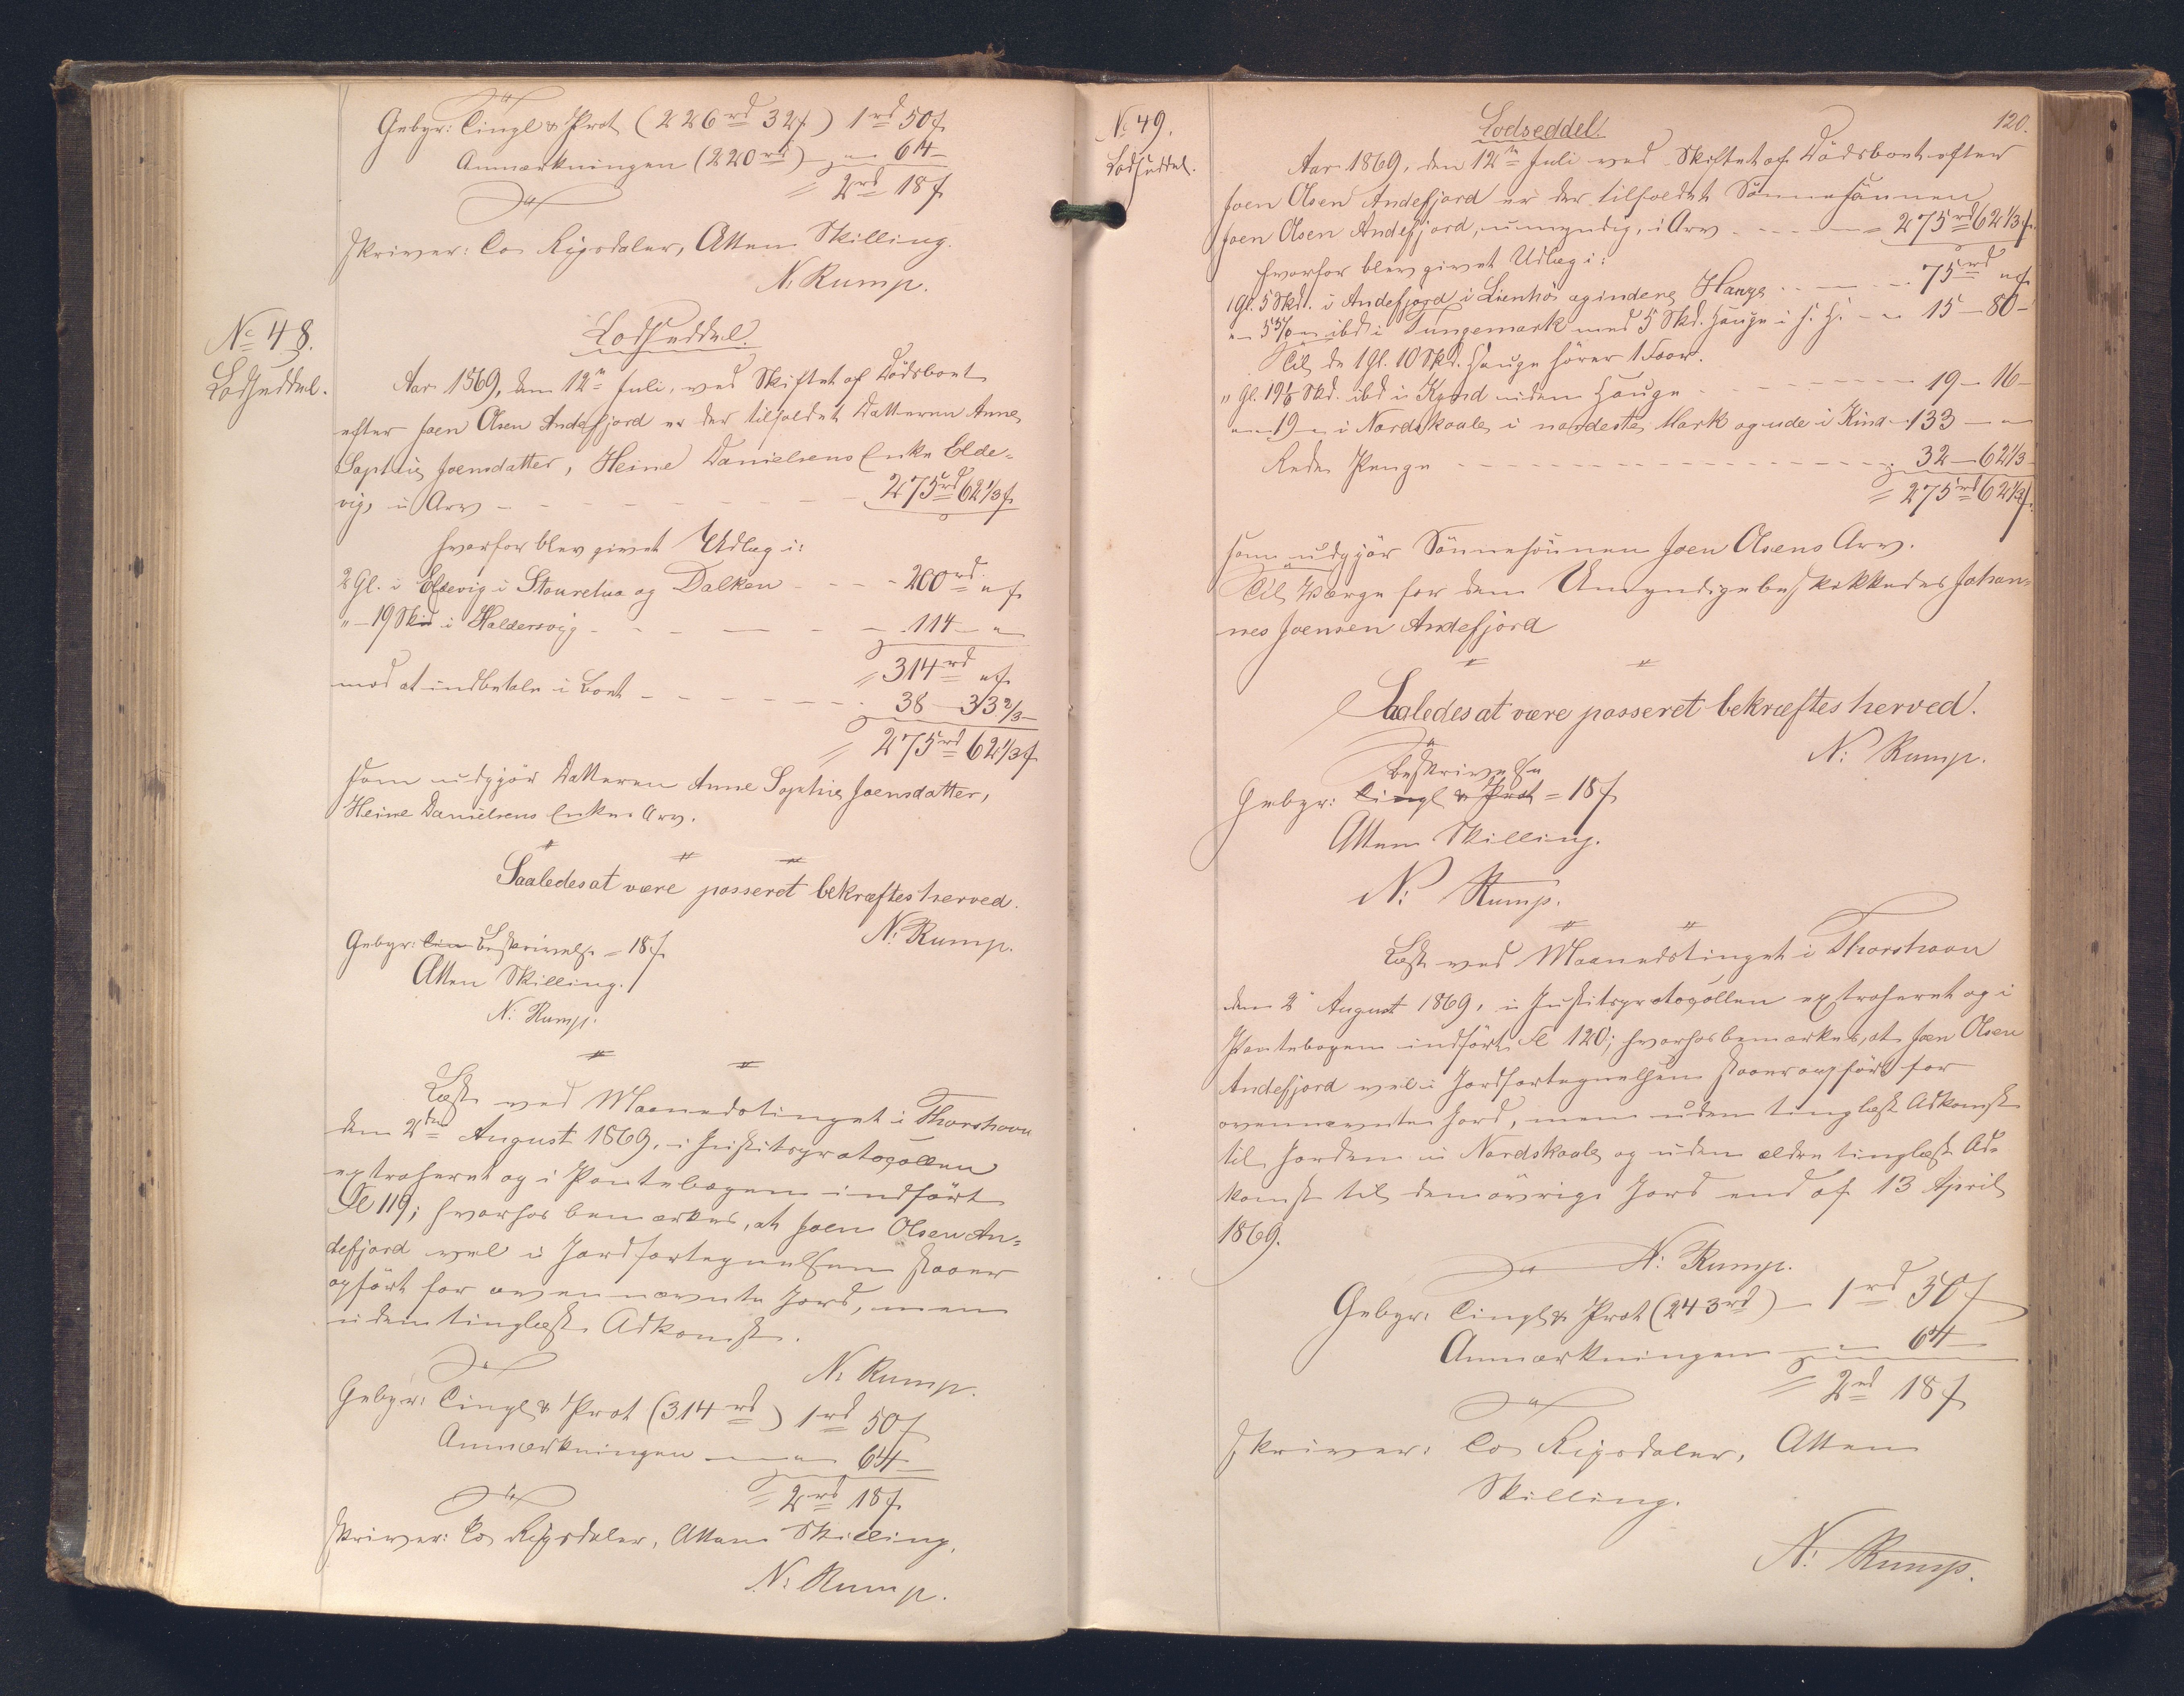 Gebyr: Tingl & Prot (226rd 32f) 1rd 50f
Anmærkningen (220rd) - " 64 -
= 2rd 18f
skriver: To Rigsdaler, Atten Skilling.
N. Rump.
No 48.
Lodseddel.
Lodseddel.
Aar 1869, den 12te Juli, ved Skiftet af Dødsboet
efter Joen Olsen Andefjord er der tilfaldet Datteren Anne
Sophie Joensdatter, Heine Danielsens Enke Elde=
vig, i Arv - - - - - - 275rd 62 1/3f
hvorfor blev givet Udlæg i:
2 Gl. i Eldevig i Stouretua og Dalken - - - 200rd " f
" - 19 Skd i Haldersvig - - - - - 114 - "
= 314rd " f
mod at indbetale i Boet - - - - - 38 - 33 2/3 -
= 275rd 62 1/3f
som udgjør Datteren Anne Sophie Joensdatter,
Heine Danielsens Enkes Arv.
Saaledes at være passeret bekræftes herved.
N: Rump.
Gebyr: Beskrivelse = 18f
Atten Skilling.
N: Rump.
Læst ved Maanedstinget i Thorshavn
den 2den August 1869, i Justitsprotocollen
extraheret og i Pantebogen indført
Fol 119; hvorhos bemærkes, at Joen Olsen An=
defjord vel i Jordfortegnelsen staaer
opført for ovennævnte Jord, men
uden tinglæst Adkomst.
N: Rump.
Gebyr: Tingl & Prot (314rd) 1rd 50f
Anmærkningen - " 64 -
= 2rd 18f
skriver: To Rigsdaler, Atten Skilling.
N: Rump.
120.
No 49.
Lodseddel.
Lodseddel.
Aar 1869, den 12te Juli ved Skiftet af Dødsboet efter
Joen Olsen Andefjord er der tilfaldet Sønnesønnen
Joen Olsen Andefjord, umyndig, i Arv - - - - = 275rd 62 1/3f
hvorfor blev givet Udlæg i:
1 Gl. 5 Skd. i Andefjord i Lienhös og indene Hauge - - - - 75rd " f
" - 5 5/6 " ibd i Tungemark med 5 Skd. Hauge i h. H. - " 15 - 80 -
Til de 1 Gl. 10 Skd. Hauge hører 1 Foor.
" Gl. 19 1/6 Skd. ibd i Kand uden Hauge - - - - - 19 - 16 -
" - 19 " i Nordskaale i nordeste Mark og ude i Kina - 133 - "
Rede Penge - - - - - - - - 32 - 62 1/3
= 275rd 62 1/3f.
som udgjör Sönnesönnen Joen Olsens Arv.
Til Værge for den Umyndige beskikkedes Johan=
nes Joensen Andefjord
Saaledes at være passeret bekræftes herved.
N: Rump.
Beskrivelse
Gebyr: Tingl & Prot = 18f
Atten Skilling.
N: Rump.
Læst ved Maanedstinget i Thorshavn
den 2' August 1869, i Justitsprotocollen extraheret og i
Pantebogen indført Fol 120; hvorhos bemærkes, at Joen Olsen
Andefjord vel i Jordfortegnelsen staaer opført for
ovennævnte Jord, men uden tinglæst Adkomst
til Jorden i Nordskaale og uden ældre tinglæst Ad=
komst til den øvrige Jord end af 13 April
1869.
N: Rump.
Gebyr: Tingl & Prot (243rd) - 1rd 50f
Anmærkningen - " 64 -
= 2rd 18f
skriver: To Rigsdaler, Atten
Skilling.
N: Rump.